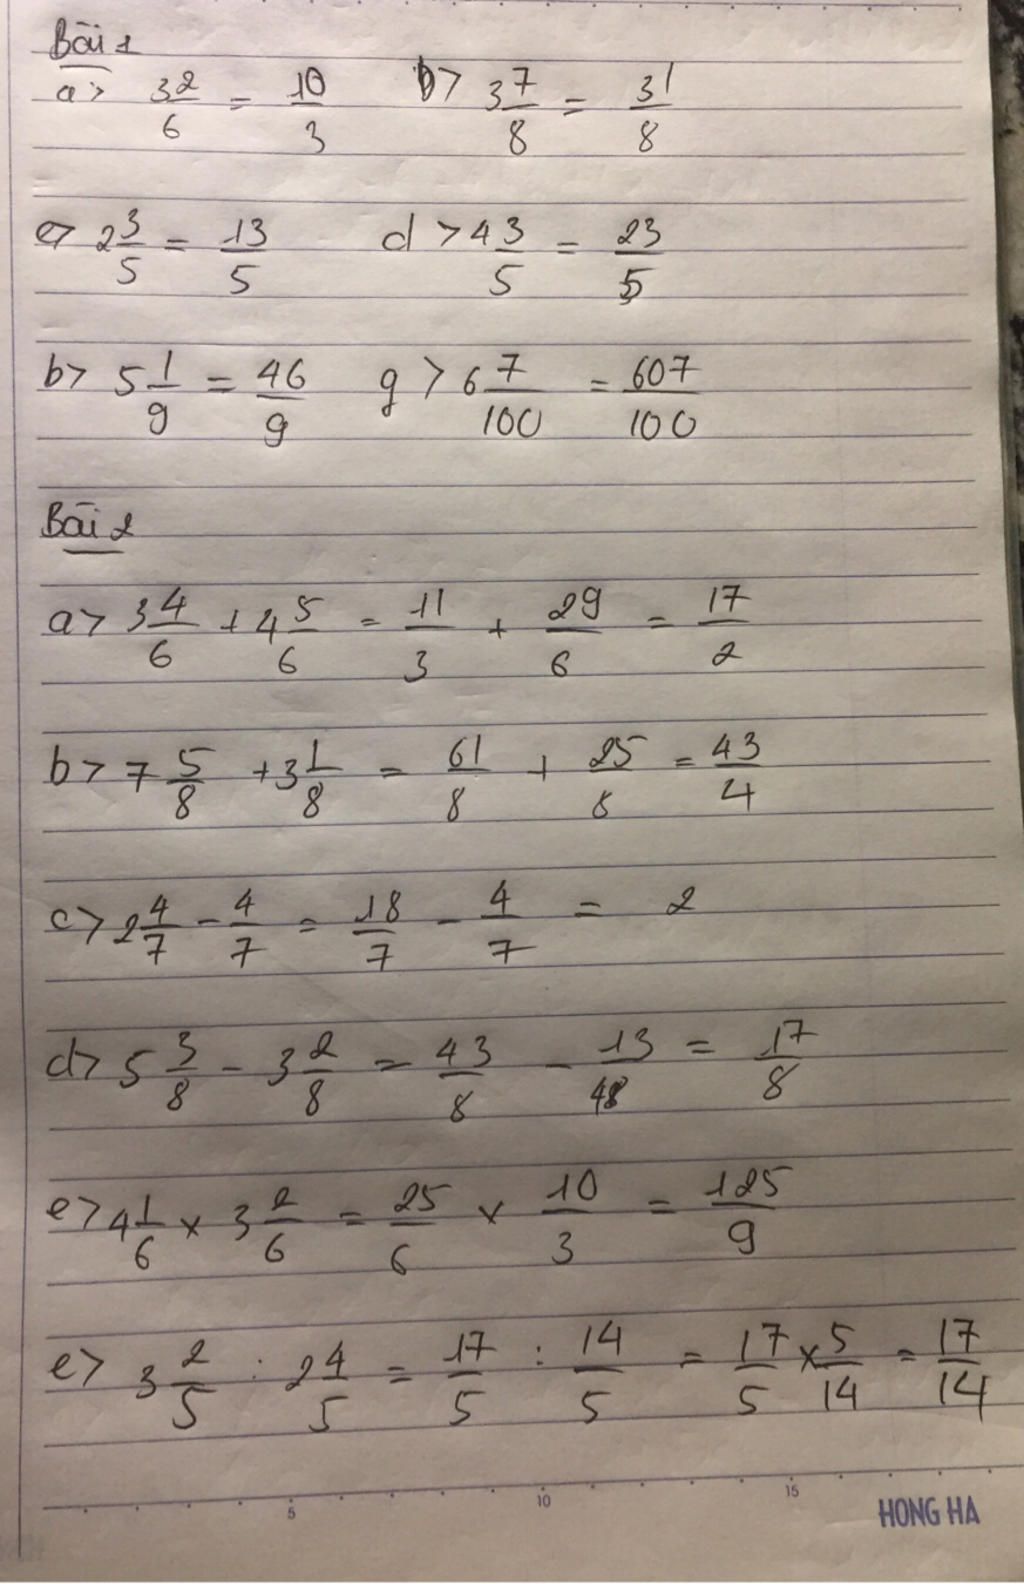 Bài 1
a> 3 2/6 = 10/3 b> 3 7/8 = 31/8
c> 2 3/5 = 13/5 d> 4 3/5 = 23/5
b> 5 1/9 = 46/9 g> 6 7/100 = 607/100
Bài 2
a> 3 4/6 + 4 5/6 = 11/3 + 29/6 = 17/2
b> 7 5/8 + 3 1/8 = 61/8 + 25/8 = 43/4
c> 2 4/7 - 4/7 = 18/7 - 4/7 = 2
d> 5 3/8 - 3 2/8 = 43/8 - 13/48 = 17/8
e> 4 1/6 x 3 2/6 = 25/6 x 10/3 = 125/9
e> 3 2/5 : 2 4/5 = 17/5 : 14/5 = 17/5 x 5/14 = 17/14
5 10 15
HONG HA